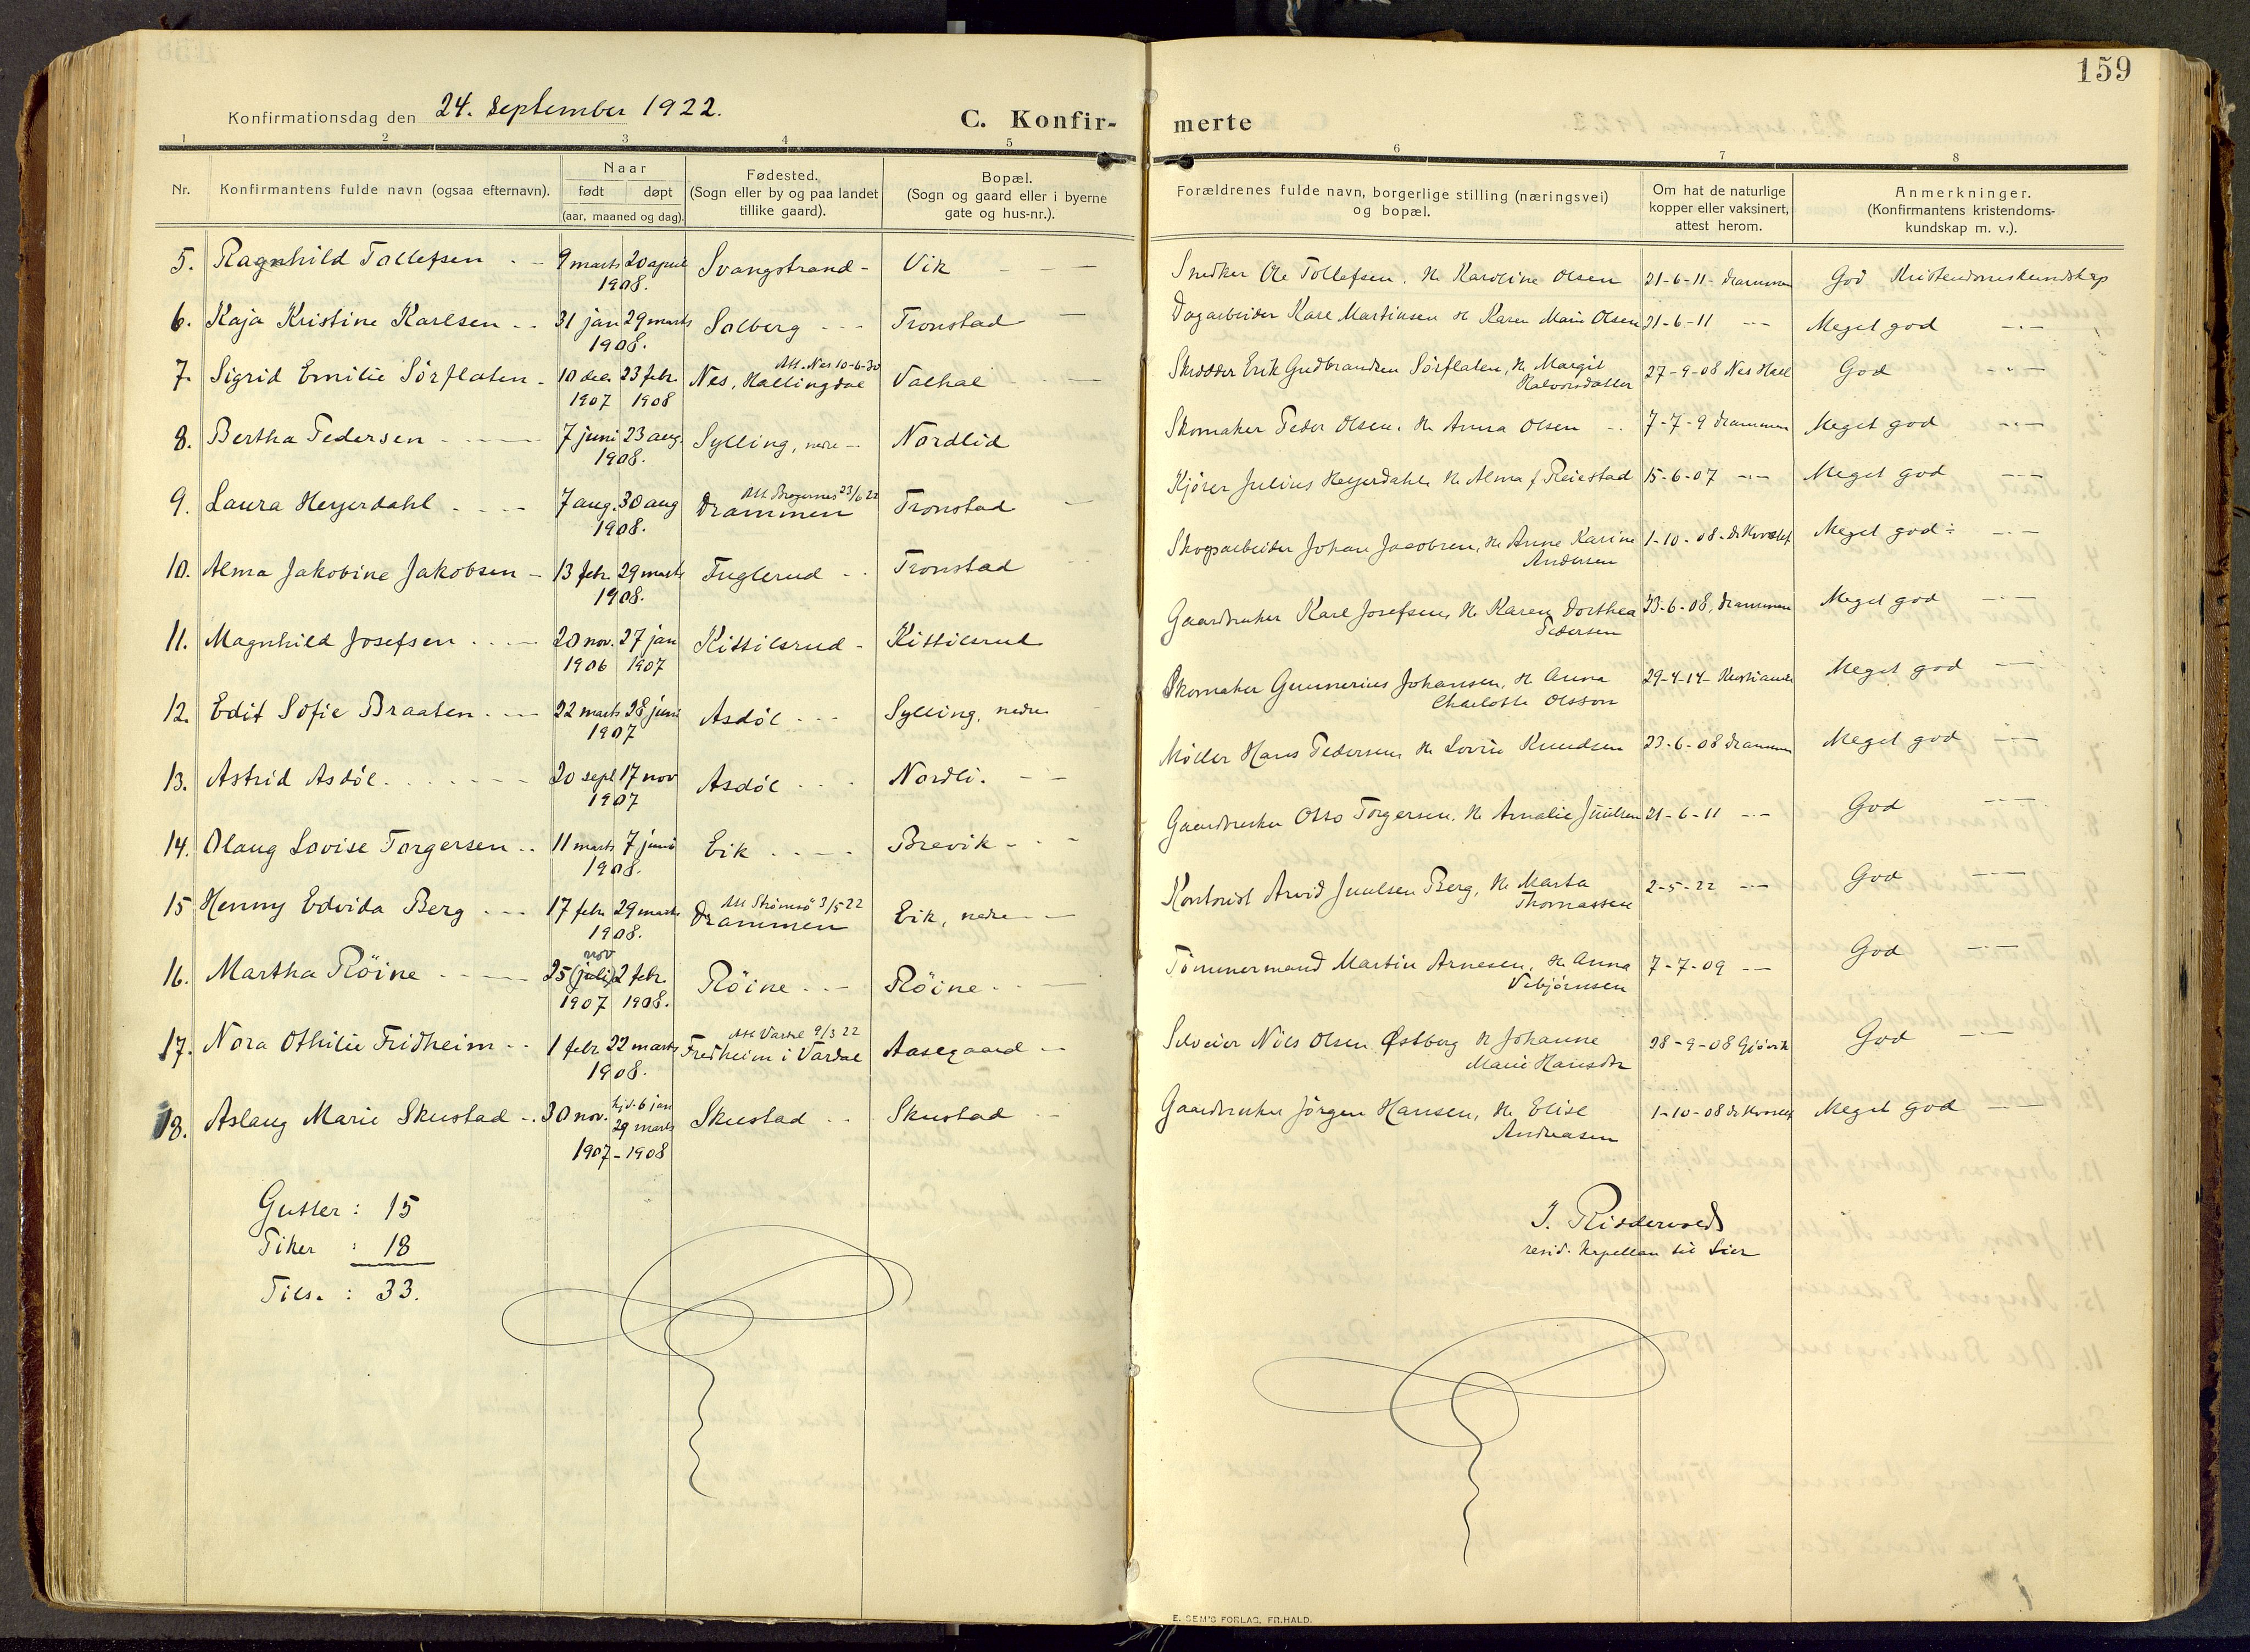 159
Konfirmationsdag den 24. September 1922.
C. Konfir-
merte
1 2 3 4 5 6 7 8
Nr.
Konfirmantens fulde navn (ogsaa efternavn).
Naar
født døpt
(aar, maaned og dag).
Fødested.
(Sogn eller by og paa landet
tillike gaard).
Bopæl.
(Sogn og gaard eller i byerne
gate og hus-nr.).
Forældrenes fulde navn, borgerlige stilling (næringsvei)
og bopæl.
Om hat de naturlige
kopper eller vaksinert,
attest herom.
Anmerkninger.
(Konfirmantens kristendoms-
kundskap m. v.).
5. Ragnhild Tollefsen 9 marts 20 april Svangstrand Vik Snedker Ole Tollefsen. H. Karoline Olsen 21-6-11- Drammen God Kristendomskundskap
1908.
6. Kaja Kristine Karlsen 31 jan 29 marts Solberg Tronstad Dagarbeider Karl Martinsen H Karen Marie Olsen 21-6-11 Meget god
1908.
Att. Nes 10-6-30
7. Sigrid Emilie Sörflaten 10 dec. 23 febr. Nes, Hallingdal Valhal Skrædder Erik Gudbrandsen Sörflaten, H. Margit 27-9-08 Nes Hall God
1907 1908 Halvorsdatter
8. Bertha Pedersen 7 juni 23 aug. Sylling, nedre Nordlid Skomaker Peder Olsen. H. Anna Olsen 7-7-9 Drammen Meget god
1908.
Att. Bragernes 23/6 22
9. Laura Heyerdahl 7 aug. 30 aug Drammen Tronstad Kjører Julius Heyerdahl. H. Alma f Reiestad 15-6-07 Meget god
1908.
10. Alma Jakobine Jakobsen 13 febr. 29 marts Fuglerud Tronstad Skogsarbeider Johan Jacobsen, H. Anne Karine 1-10-08 Meget god÷
1908. Andersen
11. Magnhild Josefsen 20 nov. 27 jan Kittilsrud Kittilsrud Gaardbruker Karl Josefsen, H. Karen Dorthea 23-6-08, Drammen Meget god
1906 1907 Pedersen
12. Edit Sofie Braaten 22 marts 28 juni Asdöl Sylling, nedre Skomaker Gunnerius Johansen, H Anna 29-4-14- Meget god
1907 Charlotte Olsson
13. Astrid Asdöl 20 sept 17 nov Asdöl Nordli. Møller Hans Pedersen, H. Lovise Knudsen 23-6-08 Drammen Meget god
1907
14. Olaug Lovise Torgersen 11 marts 7 juni Eik Brevik Gaardbruker Otto Torgersen. H. Amalie Juulsen 21-6-11 God
1908.
Att Strømsö 3/5 22
15 Henny Edvida Berg 17 febr. 29 marts Drammen Eik, nedre Kontorist Arvid Juulsen Berg, H. Marta 2-5-22 God
1908. Thomassen
nov
16. Martha Röine 25 (juli) 2 febr. Röine Röine Tömmermand Martin Arnesen, H. Anna 7-7-09 God
1907 1908. Vebjörnsen
Att Vardal 9/3 22
17. Nora Othilie Fridheim 1 febr 22 marts Fredheim i Vardal Aasegaard Selveier Nils Olsen Østberg H Johanne 28-9-08 Gjövik God
1908. Marie Hansdtr
hjd. 6 jan
18. Aslaug Marie Skustad 30 nov. 29 marts Skustad Skustad Gaardbruker Jörgen Hansen, H. Elise 1-10-08 Meget god
1907-1908 Andreasen
Gutter: 15
Piker : 18
Tils. : 33.
J. Riddervold
resid. kapellan til Lier
E. SEM'S FORLAG, FR.HALD.